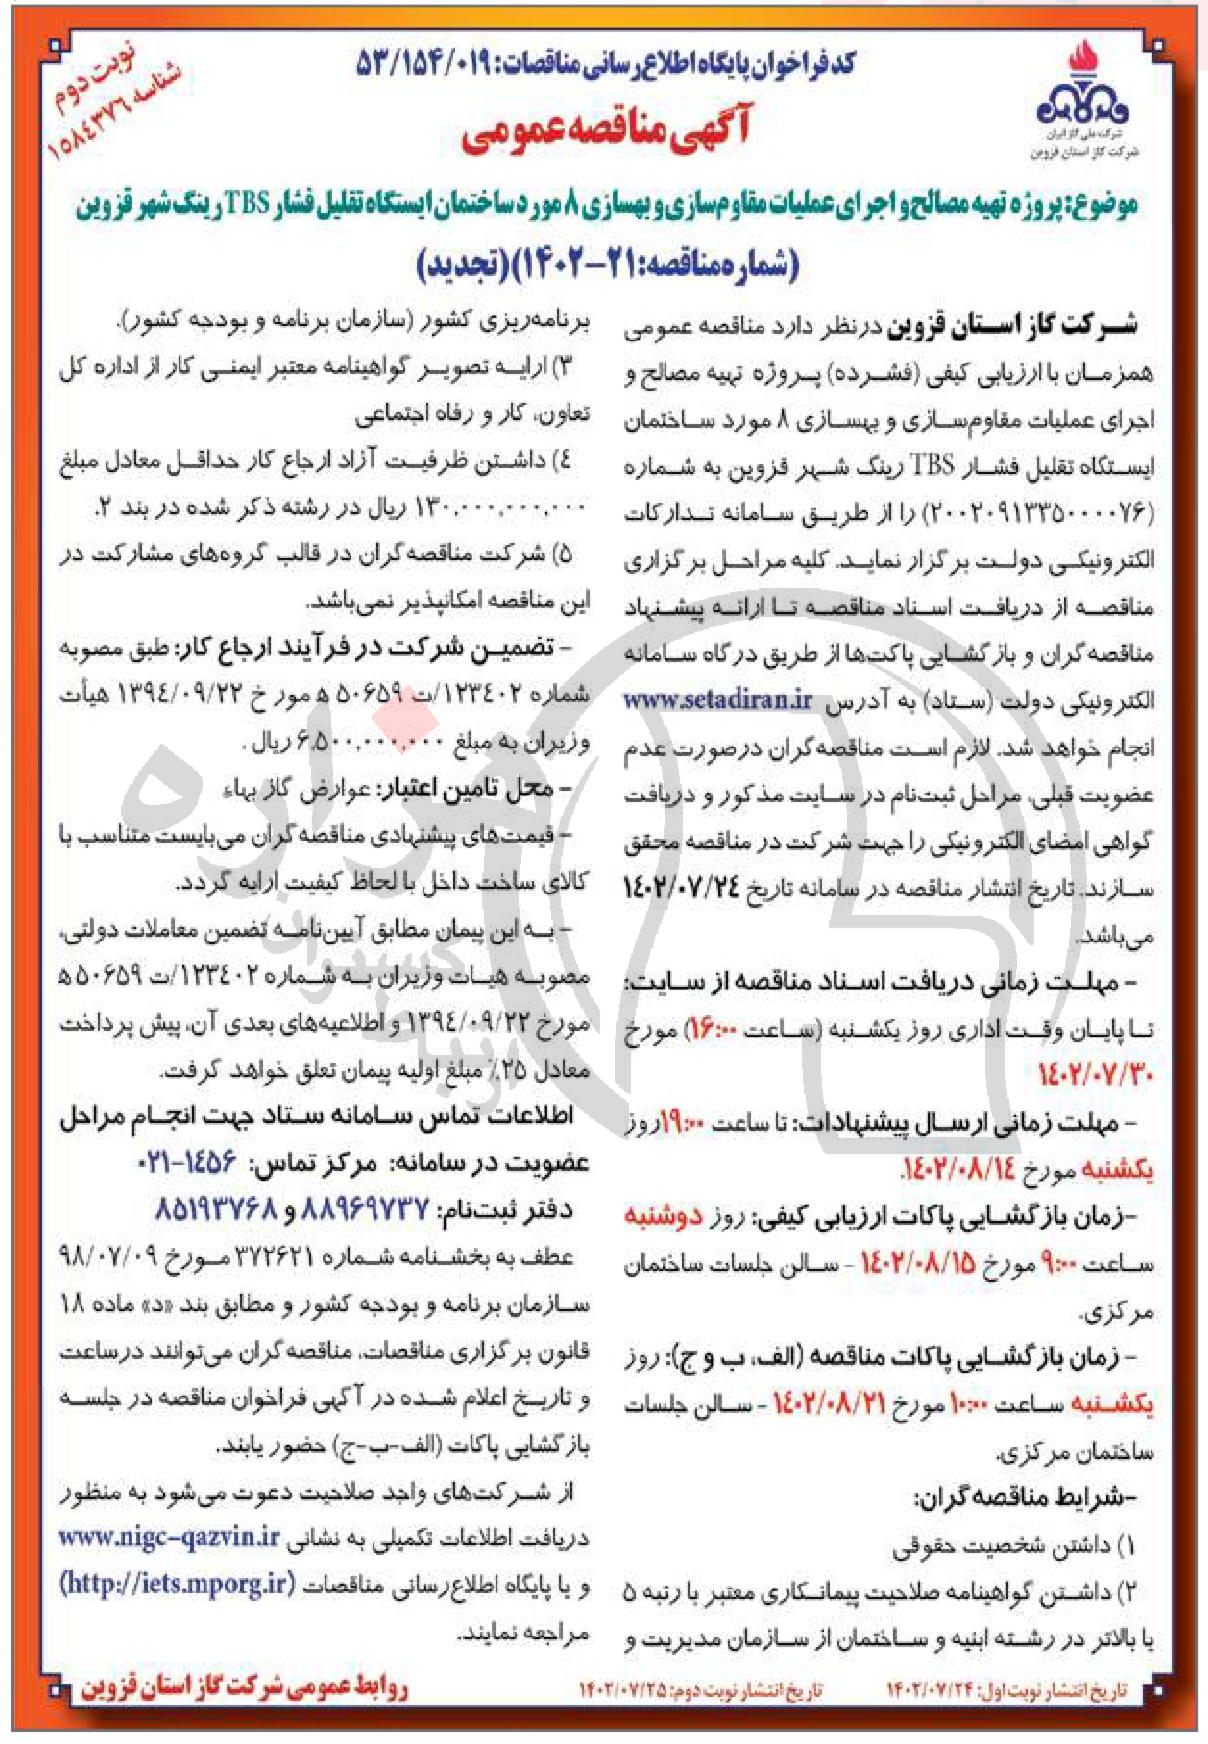 نوبت دوم
شناسه ۱۵۸٤۳۷٦
کدفراخوان پایگاه اطلاع‌رسانی مناقصات: ۵۳/۱۵۴/۰۱۹
آگهی مناقصه عمومی
شرکت ملی گاز ایران
شرکت گاز استان قزوین
موضوع: پروژه تهیه مصالح و اجرای عملیات مقاوم‌سازی و بهسازی ۸ مورد ساختمان ایستگاه تقلیل فشار TBS رینگ شهر قزوین
(شماره مناقصه: ۲۱-۱۴۰۲) (تجدید)
شرکت گاز استان قزوین درنظر دارد مناقصه عمومی
همزمان با ارزیابی کیفی (فشرده) پروژه تهیه مصالح و
اجرای عملیات مقاوم‌سازی و بهسازی ۸ مورد ساختمان
ایستگاه تقلیل فشار TBS رینگ شهر قزوین به شماره
(۲۰۰۲۰۹۱۳۳۵۰۰۰۰۷۶) را از طریق سامانه تدارکات
الکترونیکی دولت برگزار نماید. کلیه مراحل برگزاری
مناقصه از دریافت اسناد مناقصه تا ارائه پیشنهاد
مناقصه‌گران و بازگشایی پاکت‌ها از طریق درگاه سامانه
الکترونیکی دولت (ستاد) به آدرس www.setadiran.ir
انجام خواهد شد. لازم است مناقصه‌گران درصورت عدم
عضویت قبلی، مراحل ثبت‌نام در سایت مذکور و دریافت
گواهی امضای الکترونیکی را جهت شرکت در مناقصه محقق
سازند. تاریخ انتشار مناقصه در سامانه تاریخ ۱٤۰۲/۰۷/۲٤
می‌باشد.
- مهلت زمانی دریافت اسناد مناقصه از سایت:
تا پایان وقت اداری روز یکشنبه (ساعت ۱۶:۰۰) مورخ
۱٤۰۲/۰۷/۳۰
- مهلت زمانی ارسال پیشنهادات: تا ساعت ۱۹:۰۰ روز
یکشنبه مورخ ۱٤۰۲/۰۸/۱٤.
-زمان بازگشایی پاکات ارزیابی کیفی: روز دوشنبه
ساعت ۹:۰۰ مورخ ۱٤۰۲/۰۸/۱۵ - سالن جلسات ساختمان
مرکزی.
- زمان بازگشایی پاکات مناقصه (الف، ب و ج): روز
یکشنبه ساعت ۱۰:۰۰ مورخ ۱٤۰۲/۰۸/۲۱ - سالن جلسات
ساختمان مرکزی.
-شرایط مناقصه‌گران:
۱) داشتن شخصیت حقوقی
۲) داشتن گواهینامه صلاحیت پیمانکاری معتبر با رتبه ۵
یا بالاتر در رشته ابنیه و ساختمان از سازمان مدیریت و
برنامه‌ریزی کشور (سازمان برنامه و بودجه کشور).
۳) ارایه تصویر گواهینامه معتبر ایمنی کار از اداره کل
تعاون، کار و رفاه اجتماعی
٤) داشتن ظرفیت آزاد ارجاع کار حداقل معادل مبلغ
۱۳۰،۰۰۰،۰۰۰،۰۰۰ ریال در رشته ذکر شده در بند ۲.
۵) شرکت مناقصه‌گران در قالب گروه‌های مشارکت در
این مناقصه امکانپذیر نمی‌باشد.
- تضمین شرکت در فرآیند ارجاع کار: طبق مصوبه
شماره ۱۲۳٤۰۲/ت ۵۰۶۵۹ ه‍ مورخ ۱۳۹٤/۰۹/۲۲ هیأت
وزیران به مبلغ ۶،۵۰۰،۰۰۰،۰۰۰ ریال.
- محل تامین اعتبار: عوارض گاز بهاء
- قیمت‌های پیشنهادی مناقصه‌گران می‌بایست متناسب با
کالای ساخت داخل با لحاظ کیفیت ارایه گردد.
- به این پیمان مطابق آیین‌نامه تضمین معاملات دولتی،
مصوبه هیات وزیران به شماره ۱۲۳٤۰۲/ت ۵۰۶۵۹ ه‍
مورخ ۱۳۹٤/۰۹/۲۲ و اطلاعیه‌های بعدی آن، پیش پرداخت
معادل ۲۵٪ مبلغ اولیه پیمان تعلق خواهد گرفت.
اطلاعات تماس سامانه ستاد جهت انجام مراحل
عضویت در سامانه: مرکز تماس: ۱٤۵۶-۰۲۱
دفتر ثبت‌نام: ۸۸۹۶۹۷۳۷ و ۸۵۱۹۳۷۶۸
عطف به بخشنامه شماره ۳۷۲۶۲۱ مورخ ۹۸/۰۷/۰۹
سازمان برنامه و بودجه کشور و مطابق بند «د» ماده ۱۸
قانون برگزاری مناقصات، مناقصه‌گران می‌توانند درساعت
و تاریخ اعلام شده در آگهی فراخوان مناقصه در جلسه
بازگشایی پاکات (الف-ب-ج) حضور یابند.
از شرکت‌های واجد صلاحیت دعوت می‌شود به منظور
دریافت اطلاعات تکمیلی به نشانی www.nigc-qazvin.ir
و یا پایگاه اطلاع‌رسانی مناقصات (http://iets.mporg.ir)
مراجعه نمایند.
تاریخ انتشار نوبت اول: ۱۴۰۲/۰۷/۲۴
تاریخ انتشار نوبت دوم: ۱۴۰۲/۰۷/۲۵
روابط عمومی شرکت گاز استان قزوین